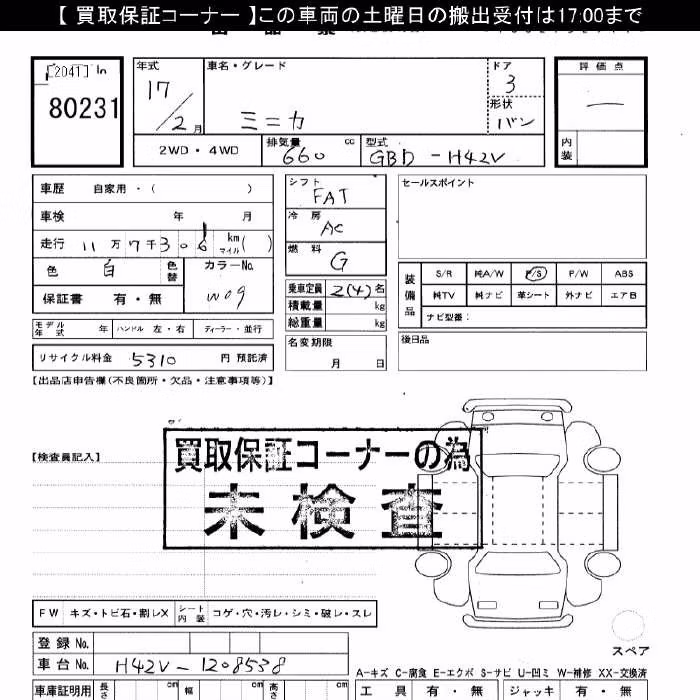 【 買取保証コーナー 】この車両の土曜日の搬出受付は17:00まで
[2041] In
80231
年式
17/2月
車名・グレード
ミニカ
ドア
3
形状
バン
評価点
―
内装
2WD・4WD
排気量 660 cc
型式 GBD-H42V
車歴 自家用・( )
車検 年 月
走行 11万7千306 km マイル ( )
色 白 色替
カラーNo. W09
保証書 有・無
モデル年式 年 ハンドル 左・右 ディーラー・並行
リサイクル料金 5310 円 預託済
シフト FAT
冷房 AC
燃料 G
乗車定員 2(4) 名
積載量 kg
総重量 kg
名変期限
月 日
セールスポイント
装備品
S/R 純A/W P/S P/W ABS
純TV 純ナビ 革シート 外ナビ エアB
ナビ型番:
後日品
【出品店申告欄(不良箇所・欠品・注意事項等)】
【検査員記入】
買取保証コーナーの為
未検査
FW キズ・トビ石・割レX シート内装 コゲ・穴・汚レ・シミ・破レ・スレ
スペア
登録No.
車台No. H42V-1208538
A-キズ C-腐食 E-エクボ S-サビ U-凹ミ W-補修 XX-交換済
車庫証明用 長さ cm 幅 cm 高さ cm
工具 有・無 ジャッキ 有・無